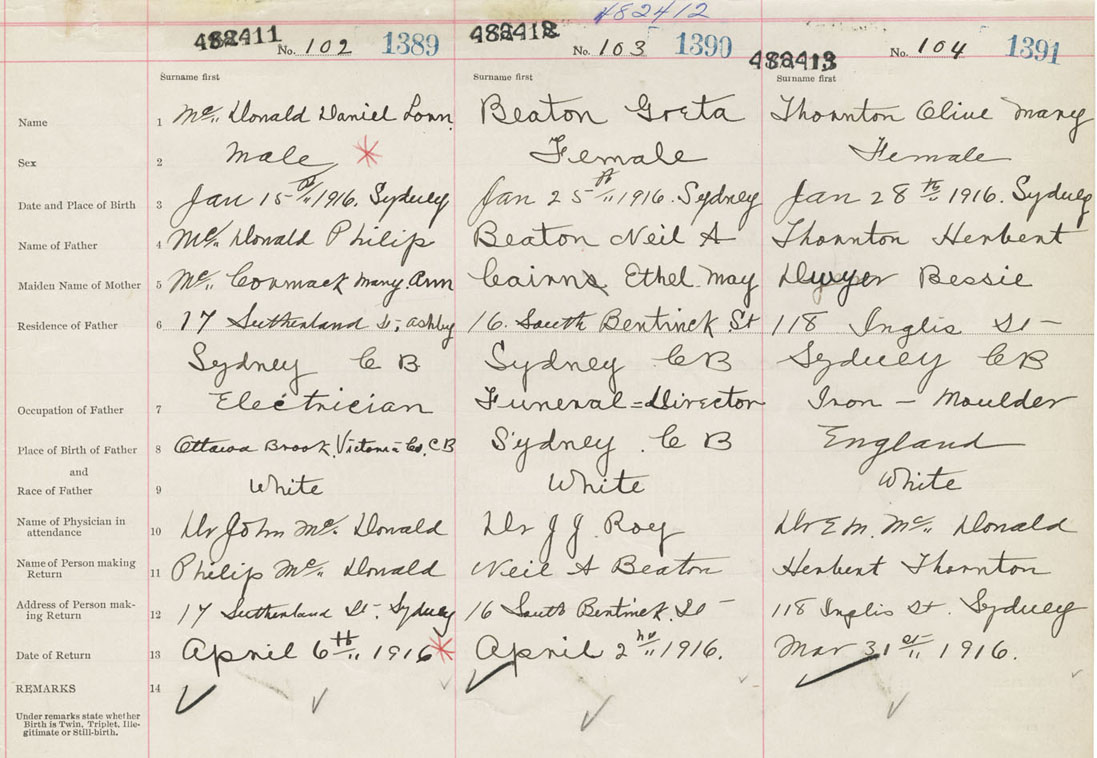 482412
482411 No. 102 1389 482412 No. 103 1390 482413 No. 104 1391
Surname first Surname first Surname first
Name 1 Mc Donald Daniel Beaton Greta Thornton Olive Mary
Sex 2 Male Female Female
Date and Place of Birth 3 Jan 15 1916. Sydney Jan 25 1916. Sydney Jan 28th 1916. Sydney
Name of Father 4 Mc Donald Philip Beaton Neil A Thornton Herbert
Maiden Name of Mother 5 Mc Cormack Mary Ann Cairns Ethel May Dwyer Bessie
Residence of Father 6 17 Sutherland St, Ashby 16. South Bentinck St 118 Inglis St
Sydney C B Sydney C B Sydney C B
Occupation of Father 7 Electrician Funeral = Director Iron - Moulder
Place of Birth of Father 8 Ottawa Brook, Victoria Co, C B Sydney C B England
and
Race of Father 9 White White White
Name of Physician in
attendance 10 Dr John Mc Donald Dr J J. Roy Dr E M. Mc Donald
Name of Person making
Return 11 Philip Mc Donald Neil A Beaton Herbert Thornton
Address of Person mak-
ing Return 12 17 Sutherland St - Sydney 16 South Bentinck St 118 Inglis St. Sydney
Date of Return 13 April 6th 1916 April 2nd 1916. Mar 31st 1916.
REMARKS 14
Under remarks state whether
Birth is Twin, Triplet, Ille-
gitimate or Still-birth.